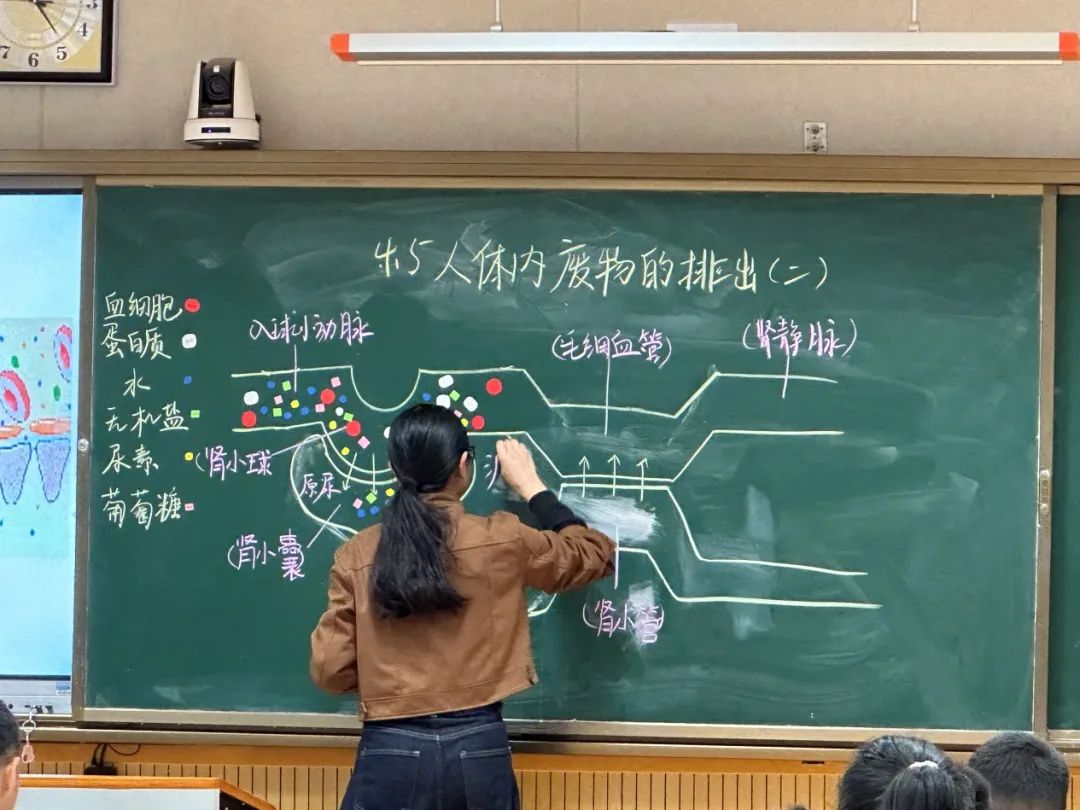 4.5人体内废物的排出(二)
血细胞
蛋白质
水
无机盐
尿素
葡萄糖
入球小动脉
(毛细血管)
(肾静脉)
(肾小球
原尿
(肾小囊)
(肾小管)
3
4
5
6
7